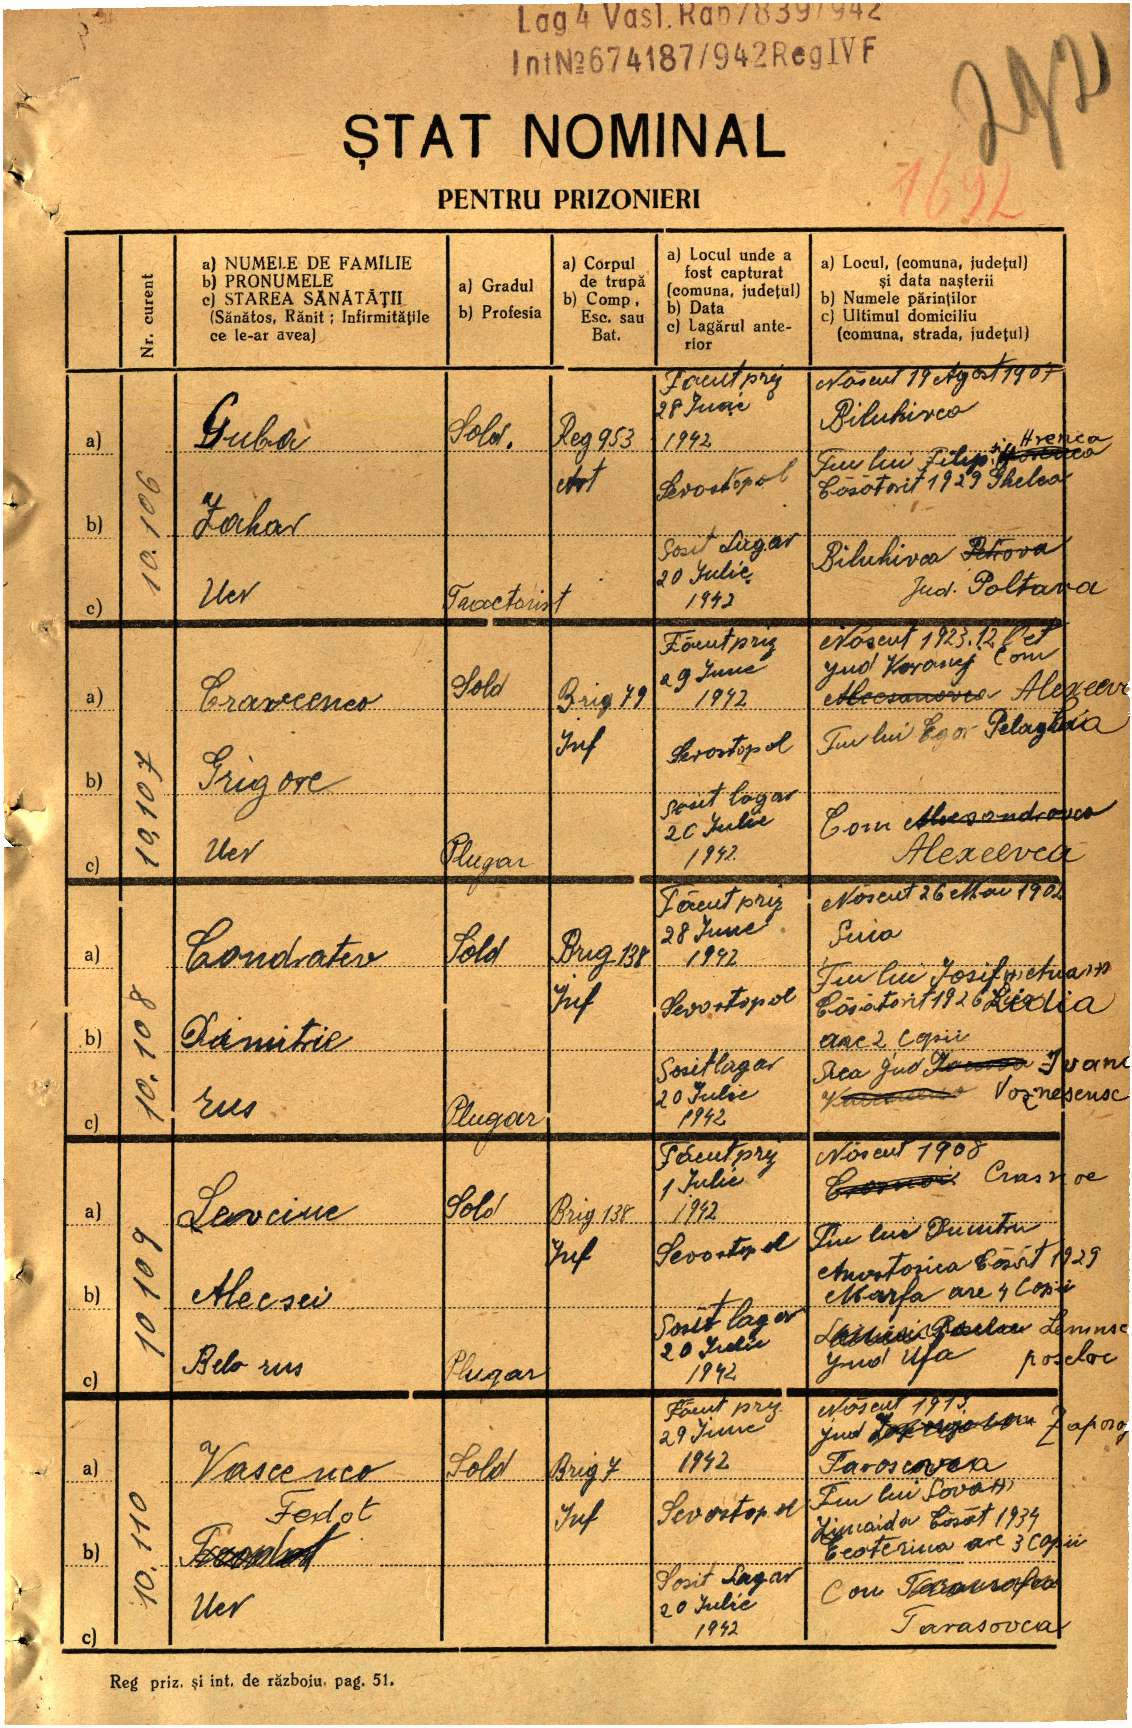 Lag 4 Vasl. Rap 7839/942
Int № 674187/942 Reg IV F
292
1692
ȘTAT NOMINAL
PENTRU PRIZONIERI
Nr. curent
a) NUMELE DE FAMILIE
b) PRONUMELE
c) STAREA SĂNĂTĂȚII
(Sănătos, Rănit ; Infirmitățile
ce le-ar avea)
a) Gradul
b) Profesia
a) Corpul
de trupă
b) Comp,
Esc. sau
Bat.
a) Locul unde a
fost capturat
(comuna, județul)
b) Data
c) Lagărul ante-
rior
a) Locul, (comuna, județul)
și data nașterii
b) Numele părinților
c) Ultimul domiciliu
(comuna, strada, județul)
10.106
a)
b)
c)
Guba
Zahar
Ucr
Sold.
Tractorist
Reg 953
Art
Făcut priz
28 Iunie
1942
Sevostopol
Sosit Lagar
20 Iulie
1942
Născut 19 Agost 1907
Biluhivca
Fiu lui Filip și Hrenca
Căsătorit 1929 Ghelea
Biluhivca Petrova
Jud. Poltava
10,107
a)
b)
c)
Cravcenco
Grigore
Ucr
Sold
Plugar
Brig 79
Inf
Făcut priz
29 Iunie
1942
Sevostopol
Sosit lagar
20 Iulie
1942
Născut 1923.12 Oct
Jud Voronej Com
Alecsanovca Alexeevc
Fiu lui Egor Pelaghia
Com Alecsandrovca
Alexeevca
10.108
a)
b)
c)
Condratev
Dimitrie
rus
Sold
Plugar
Brig 138
Inf
Făcut priz
28 Iunie
1942
Sevostopol
Sosit lagar
20 Iulie
1942
Născut 26 Mai 1902
Suia
Fiu lui Iosif
Căsătorit 1926 Lidia
are 2 Copii
Jud Ivano
Voznesensc
10 109
a)
b)
c)
Levciuc
Alecsei
Belo rus
Sold
Plugar
Brig 138
Inf
Făcut priz
1 Iulie
1942
Sevostopol
Sosit lagar
20 Iulie
1942
Născut 1908
Crasnoi Crasnoe
Fiu lui Dumitru
Anostasica Căsăt 1929
Marfa are 4 Copii
Leninsc
Jud Ufa poseloc
10.110
a)
b)
c)
Vascenco
Fedot
Ucr
Sold
Brig 7
Inf
Făcut priz
29 Iunie
1942
Sevostopol
Sosit Lagar
20 Iulie
1942
Născut 1913.
Jud Zaporoj
Taroscovca
Fiu lui Sova
Zinaida Căsăt 1934
Ecoterina are 3 Copii
Com
Tarasovca
Reg priz. și int. de războiu. pag. 51.